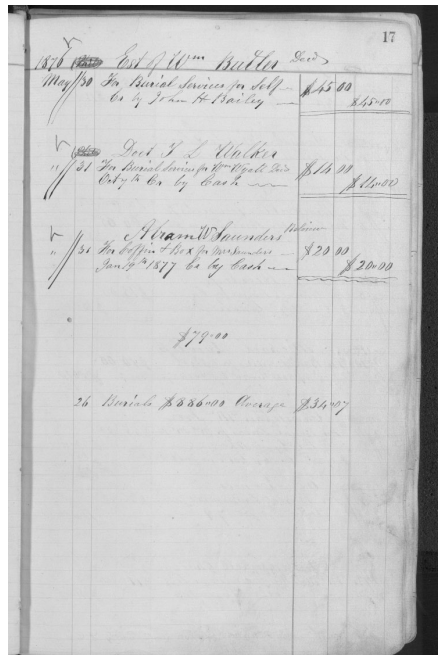 17
1876 Est of Wm Butler Decd
May 30 For Burial Services for Self $45 00
Cr by John H Bailey $45-00
Doct T L Walker
" 31 For Burial Services for Wm Wyatt Decd $14 00
Oct 7th Cr by Cash $14-00
Abram W Saunders
" 31 For Coffin & Box for Mrs Saunders $20 00
Jan 19th 1877 Cr by Cash $20-00
$79-00
26 Burials $886-00 Average $34-07